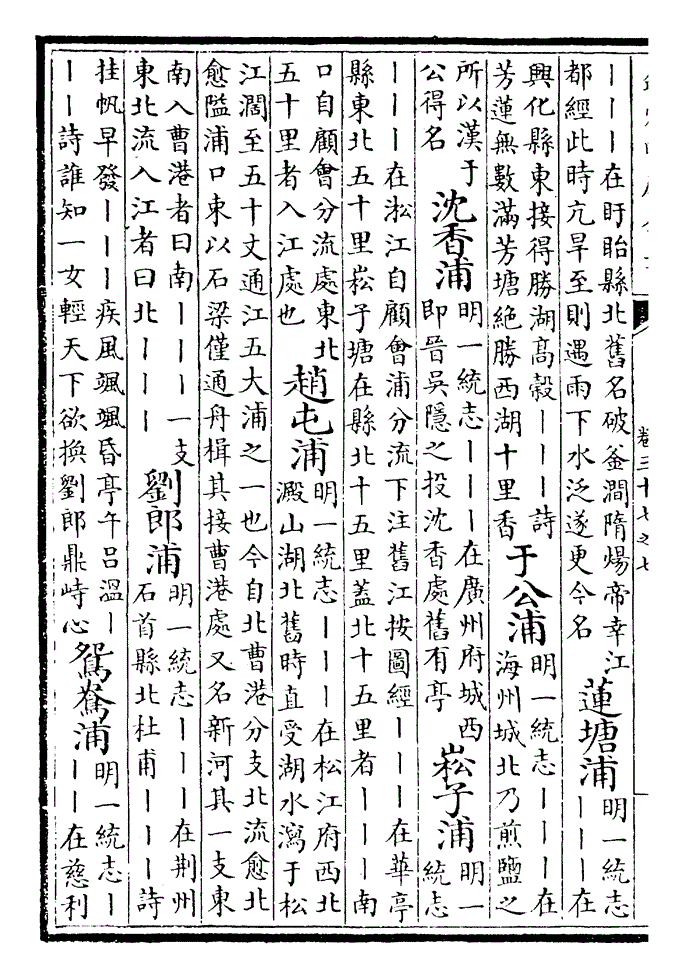 卷三十七之七
丨丨丨在盱眙縣北舊名破釜澗隋煬帝幸江
都經此時亢旱至則遇雨下水泛遂更今名
蓮塘浦
明一統志
丨丨丨在
興化縣東接得勝湖高穀丨丨丨詩
芳蓮無數滿芳塘絕勝西湖十里香
于公浦
明一統志丨丨丨在
海州城北乃煎鹽之
所以漢于
公得名
沈香浦
明一統志丨丨丨在廣州府城西
即晉吳隱之投沈香處舊有亭
崧子浦
明一
統志
丨丨丨在淞江自顧會浦分流下注舊江按圖經丨丨丨在華亭
縣東北五十里崧子塘在縣北十五里蓋北十五里者丨丨丨南
口自顧會分流處東北
五十里者入江處也
趙屯浦
明一統志丨丨丨在松江府西北
澱山湖北舊時直受湖水瀉于松
江濶至五十丈通江五大浦之一也今自北曹港分支北流愈北
愈隘浦口東以石梁僅通舟楫其接曹港處又名新河其一支東
南入曹港者曰南丨丨丨一支
東北流入江者曰北丨丨丨
劉郎浦
明一統志丨丨丨在荆州
石首縣北杜甫丨丨丨詩
挂帆早發丨丨丨疾風颯颯昏亭午吕溫丨
丨丨詩誰知一女輕天下欲換劉郎鼎峙心
鴛鴦浦
明一統志丨
丨丨在慈利